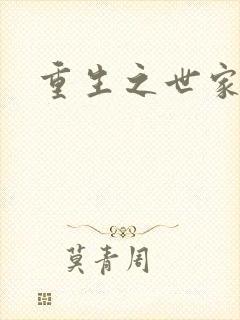 重生之世家
莫青周